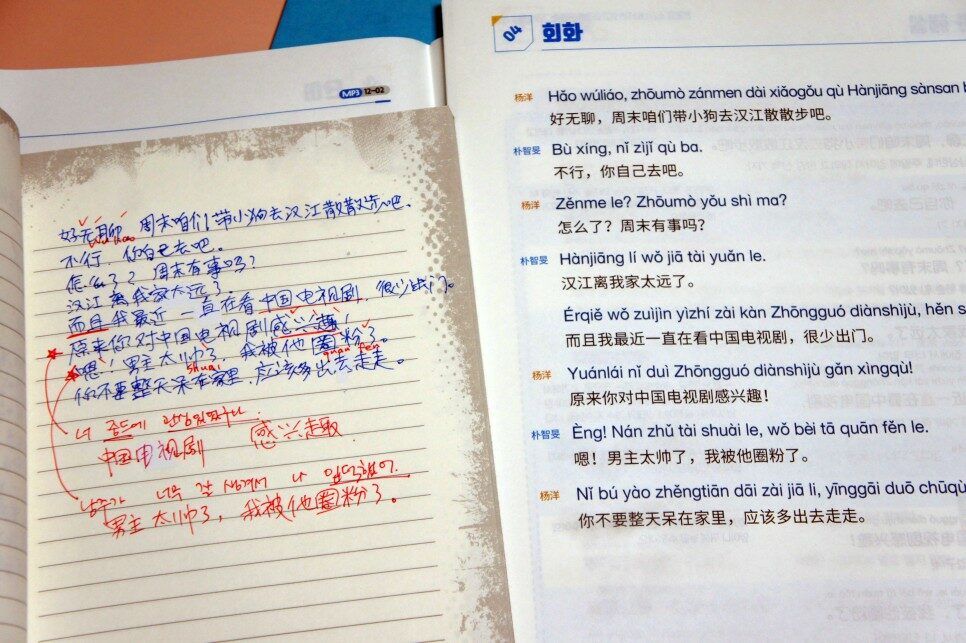 MP3 12-02
好无聊，周末咱们带小狗去汉江散散步吧。
wu liao
不行，你自己去吧。
怎么了？周末有事吗？
汉江离我家太远了。
而且我最近一直在看中国电视剧，很少出门。
原来你对中国电视剧感兴趣！
嗯！男主太帅了，我被他圈粉了。
shuai
quan fen
你不要整天呆在家里，应该多出去走走。
너 중드에 관심있었구나
中国电视剧 感兴趣
남주가 너무 잘 생겨서 나 입덕했어.
男主太帅了，我被他圈粉了。
04 회화
杨洋 Hǎo wúliáo, zhōumò zánmen dài xiǎogǒu qù Hànjiāng sànsan
好无聊，周末咱们带小狗去汉江散散步吧。
朴智旻 Bù xíng, nǐ zìjǐ qù ba.
不行，你自己去吧。
杨洋 Zěnme le? Zhōumò yǒu shì ma?
怎么了？周末有事吗？
朴智旻 Hànjiāng lí wǒ jiā tài yuǎn le.
汉江离我家太远了。
Érqiě wǒ zuìjìn yìzhí zài kàn Zhōngguó diànshìjù, hěn
而且我最近一直在看中国电视剧，很少出门。
杨洋 Yuánlái nǐ duì Zhōngguó diànshìjù gǎn xìngqù!
原来你对中国电视剧感兴趣！
朴智旻 Èng! Nán zhǔ tài shuài le, wǒ bèi tā quān fěn le.
嗯！男主太帅了，我被他圈粉了。
杨洋 Nǐ bú yào zhěngtiān dāi zài jiā li, yīnggāi duō chūqù
你不要整天呆在家里，应该多出去走走。